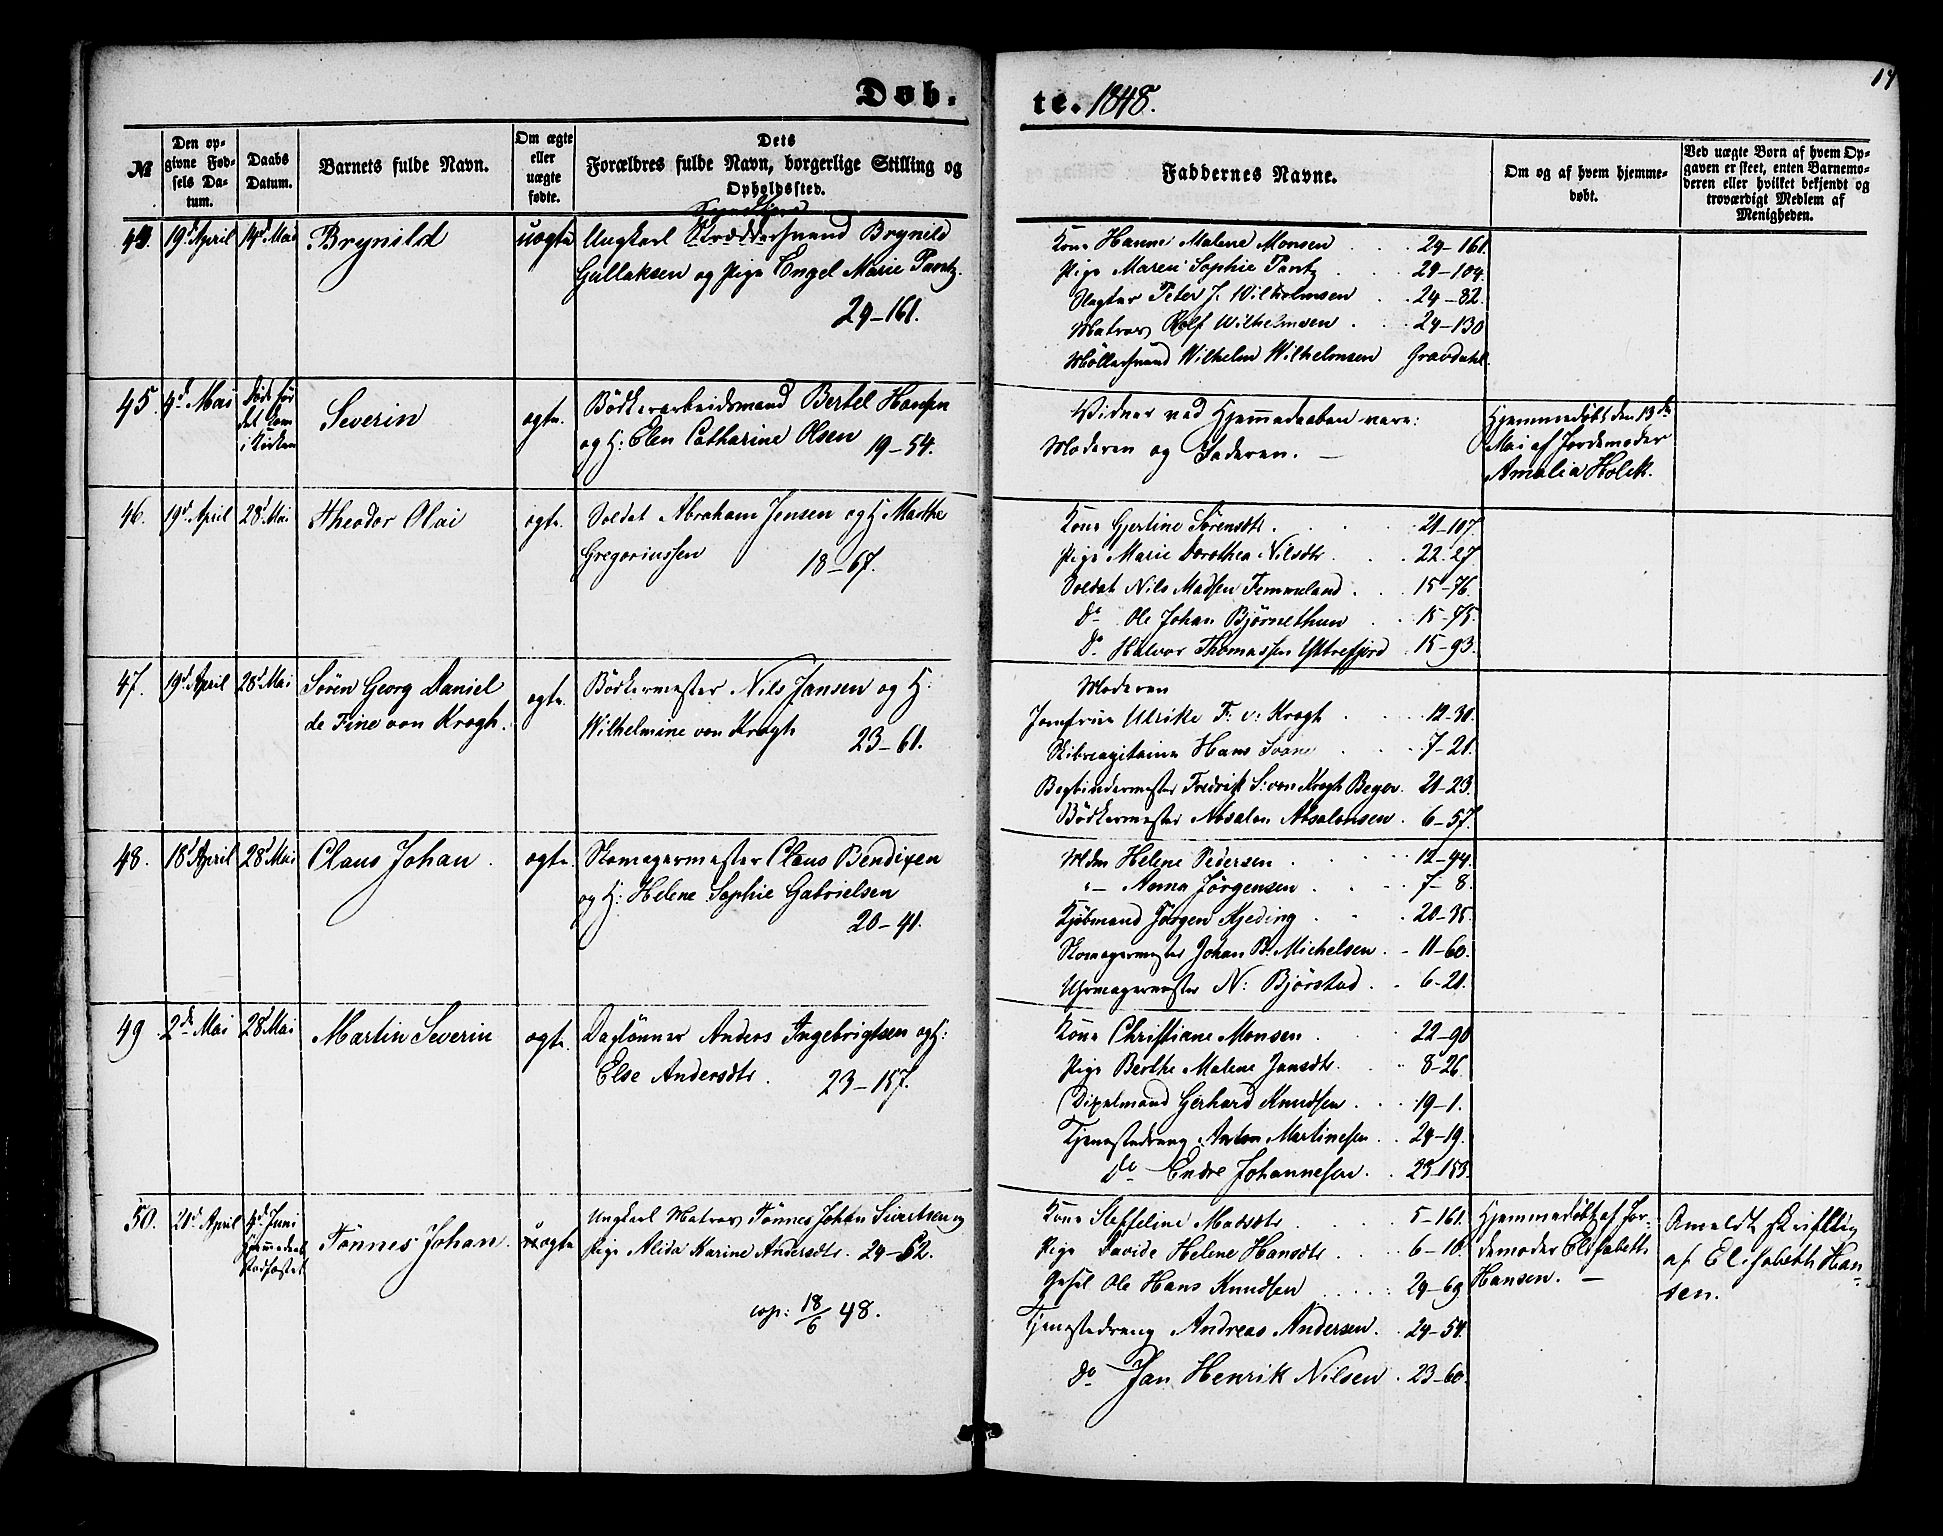 Døb.
te. 1848.
17
№
Den op-
givne Fød-
sels Da-
tum.
Daabs
Datum.
Barnets fulde Navn.
Om ægte
eller
uægte
fødte.
Dets
Forældres fulde Navn, borgerlige Stilling og
Opholdssted.
Faddernes Navne.
Om og af hvem hjemme-
døbt.
Ved uægte Børn af hvem Op-
gaven er skeet, enten Barnemo-
deren eller hvilket bekjendt og
troværdigt Medlem af
Menigheden.
44. 19d April 14d Mai Brynild uægte Ungkarl Skræddersvend Brynild
Gullaksen og Pige Engel Marie Pantz.
29-161.
Kone Hanne Malene Monsen 29-161.
Pige Maren Sophie Pantz 29-104.
Slagter Peter J. Wilhelmsen 24-82.
Matros Rolf Wilhelmsen 24-130
Møllersvend Wilhelm Wilhelmsen Gravdahl
45. 4d Mai Døde før
det kom
i Kirken
Severin ægte. Bødkerarbeidsmand Bertel Hansen
og H: Elen Catharine Olsen 19-54.
Vidner ved Hjemmedaaben vare:
Moderen og Faderen. —
Hjemmedøbt den 13de
Mai af Jordemoder
Amalia Holck.
46. 19d April 28d Mai Theodor Olai ægte. Soldat Abraham Jensen og H Marthe
Gregoriussen 18-67.
Kone Gjertine Sørensdtr. 21-107.
Pige Marie Dorothea Nilsdtr 22-27
Soldat Nils Madsen Femmeland 15-76.
do Ole Johan Bjørnethun 15-75.
do Halvor Thomassen Yttrefjord 15-93.
47. 19d April 28d Mai Søren Georg Daniel
de Fine von Krogh.
ægte. Bødkermester Nils Jansen og H:
Wilhelmine von Krogh 23-61.
Moderen
Jomfrue Ulrike F: v: Krogh 12-30.
Skibscapitaine Hans Svane 7-21.
Bogbindermester Fredrik S: von Krogh Beyer. 21-23.
Bødkermester Absalon Absalonsen. 6-57.
48. 18 April 28d Mai Claus Johan. ægte. Skomagermester Claus Bendixen
og H: Helene Sophie Gabrielsen
20-41.
Mdm Helene Pedersen 12-94.
"— Anna Jørgensen 7-8.
Kjøbmand Jørgen Kjeding 20-35.
Skomagermester Johan B. Michelsen. 11-60.
Uhrmagermester N: Bjørstad. 6-21.
49 2de Mai 28d Mai Martin Severin ægte. Daglønner Anders Ingebrigtsen og H:
Else Andersdtr. 23-157.
Kone Christiane Monsen. 22-90
Pige Berthe Malene Jansdtr. 8-26.
Dixelmand Gerhard Knudsen 19-1.
Tjenestedreng Anton Martinesen 24-19.
do Endre Johannesen. 23-153.
50. 21d April 4d Juni
Hjemmedaab
Stadfæstet
Tønnes Johan. uægte Ungkarl Matros Tønnes Johan Sivertsen og
Pige Alida Karine Andersdtr. 24-62.
cop: 18/6 48.
Kone Steffeline Madsdtr 5-161.
Pige Davide Helene Hansdtr 6-10.
Gesel Ole Hans Knudsen 29-69
Tjenestedreng Andreas Andersen. 24-54.
do Jan Henrik Nilsen. 23-60.
Hjemmedøbt af Jor-
demoder Elisabeth
Hansen. —
Anmeldt skriftlig
af Elisabeth Han-
sen.